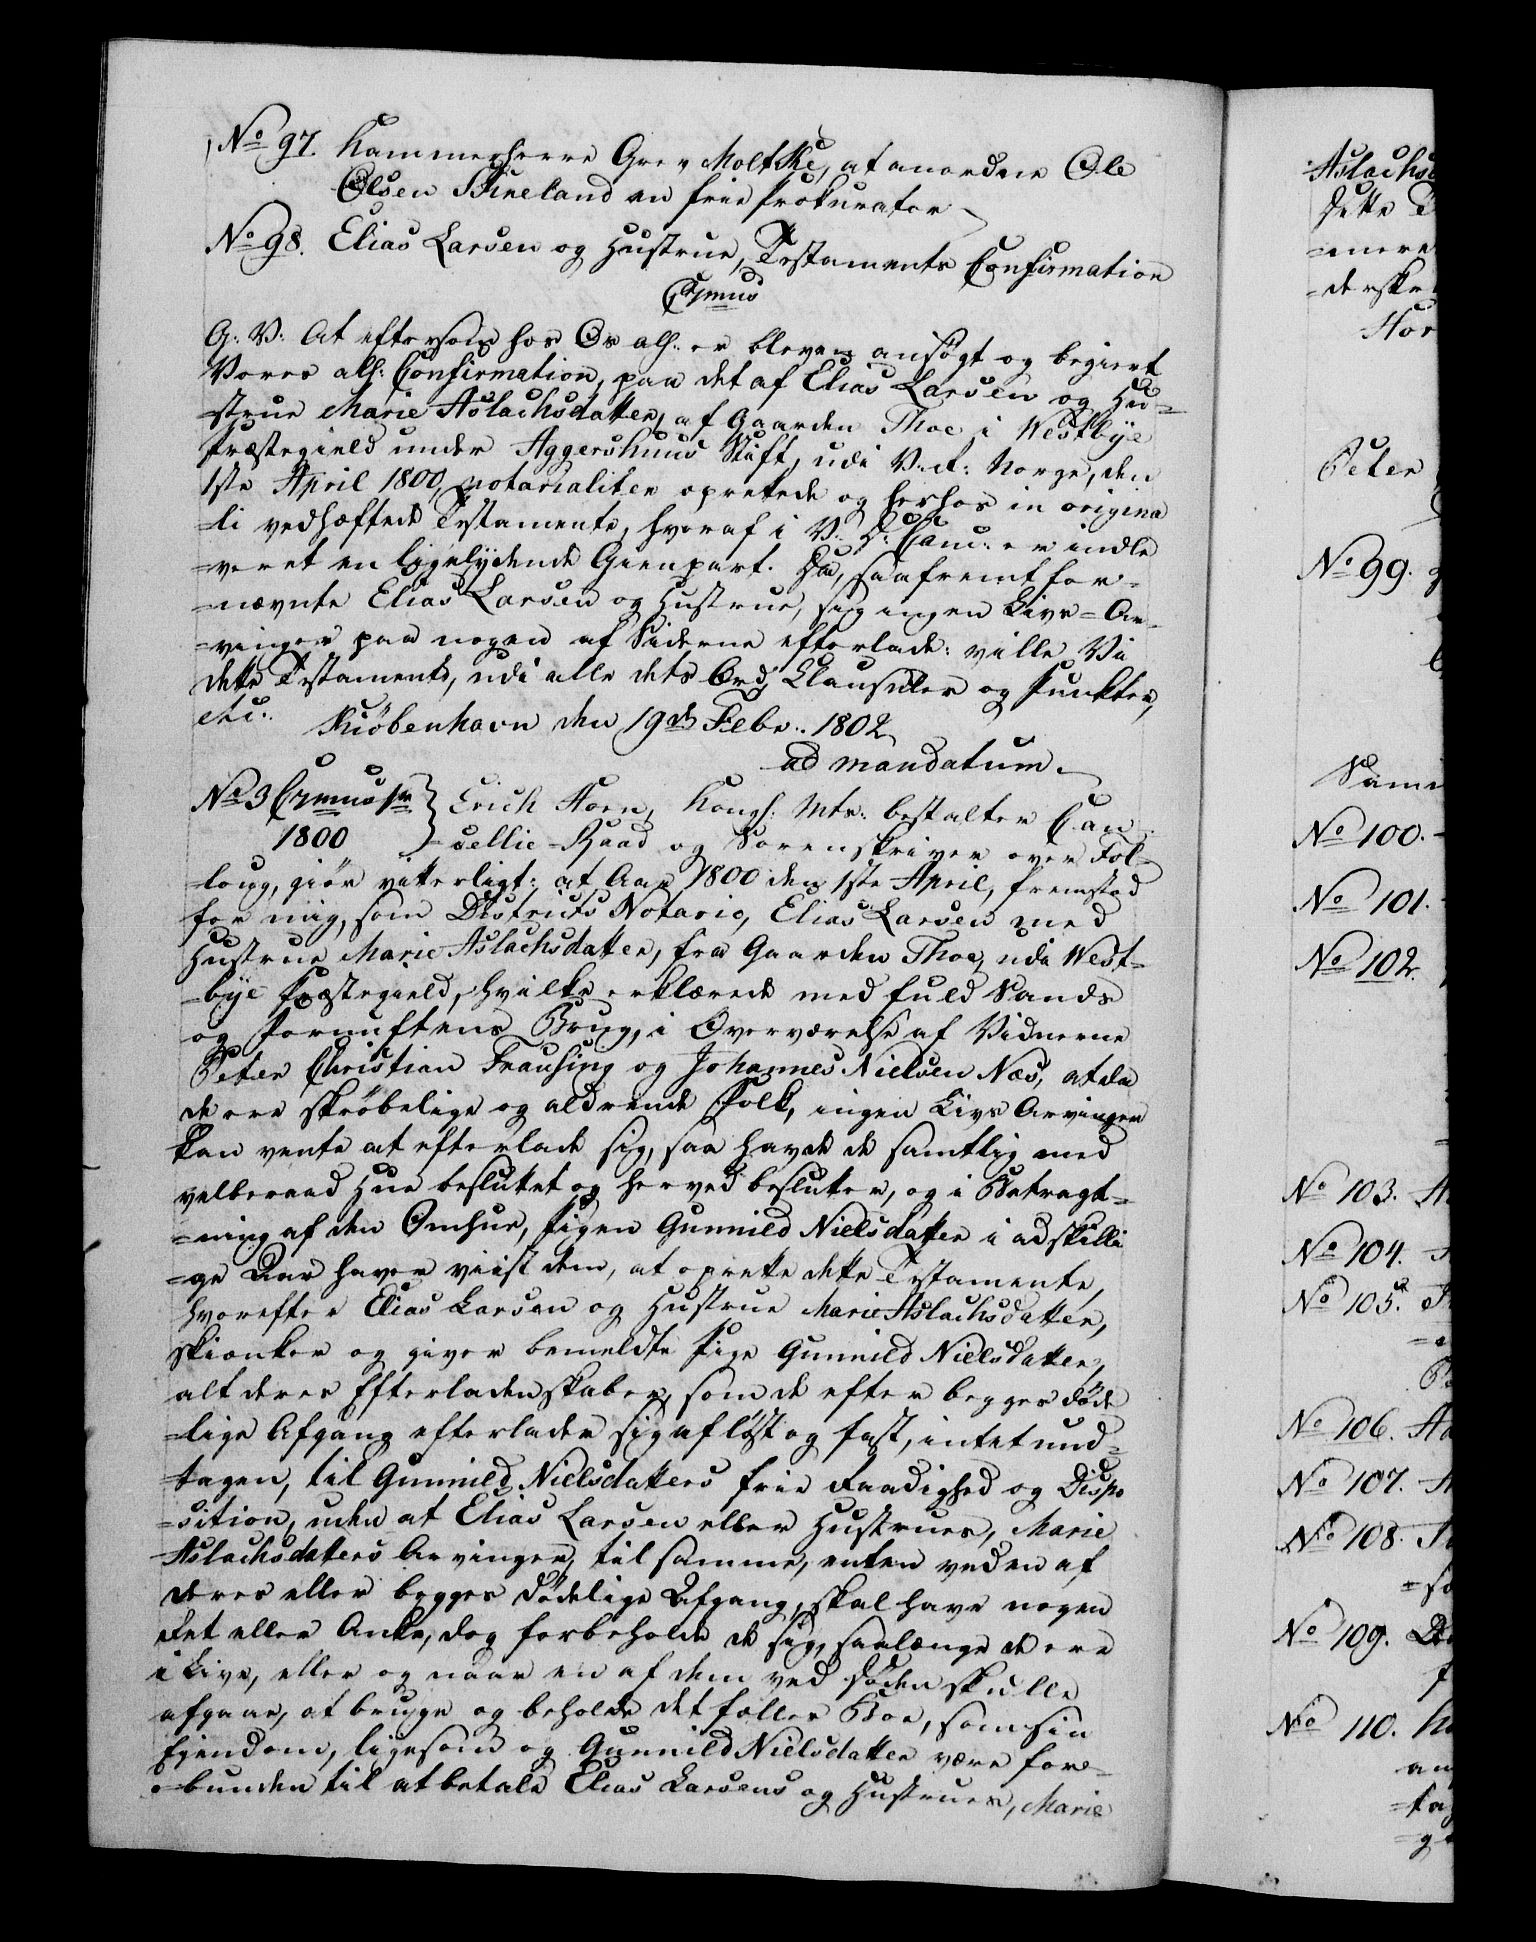 No 97. Kammerherre Grev Moltke, at anordne Ole
Olsen Skineland en frie Prokurator
No 98. Elias Larsen og Hustrue, Testaments Confirmation
C7mus
G: V: At eftersom hos Os all: er bleven ansøgt og begiert
Vores all: Confirmation, paa det af Elias Larsen og Hu=
=strue Marie Aslachsdatter, af Gaarden Thoe i Westbÿe
Præstegield under Aggershuus Stift, udi V: R: Norge, den
1ste April 1800, notarialiter oprettede og herhos in origina
=li vedhæftede Testamente, hvoraf i V: D: Canc: er indle
=veret en ligelÿdende Gienpart. Da, saafremt for=
=nævnte Elias Larsen og Hustrue, sig ingen Livs=Ar=
=vinger paa nogen af Siderne efterlade: ville Vi
dette Testamente, udi alle dets Ord, Clausuler og Punkter,
etc:.
Kiøbenhavn den 19de Febr:. 1802
ad mandatum.
No 3 C7mus 1m
1800
Erich Horn, Kongl: Mts: bestalter Can
=cellie-Raad og Sorenskriver over Fol=
=loug, giør vitterligt: at Aar 1800 den 1ste April, fremstod
for mig, som Districts Notario, Elias Larsen med
Hustrue Marie Aslachsdatter, fra Gaarden Thoe, udi West=
=bÿe Præstegield, hvilke erklærede med fuld Sands
og Fornuftens Brug, i Overværelse af Vidnerne
Peter Christian Frausing og Johannes Nielsen Næs, at da
de ere skrøbelige og aldrende Folk, ingen Livs Arvinger
kan vente at efterlade sig, saa havde de samtlig med
velberaad Hue besluttet og herved beslutter, og i Betragt=
=ning af den Omhue, Pigen Gunnild Nielsdatter i adskilli
=ge Aar haver viist dem, at oprette dette Testamente,
hvorefter Elias Larsen og Hustrue Marie Aslachsdatter,
skienker og giver bemeldte Pige Gunnild Nielsdatter,
alt deres Efterladenskaber, som de efter begges døde
=lige Afgang efterlader sig af løst og fast, intet und=
=tagen, til Gunnild Nielsdatters frie Raadighed og Dispo
=sition, uden at Elias Larsen eller Hustrues, Marie
Aslachsdatters Arvinger, til samme, enten ved en af
deres eller begges dødelige Afgang, skal have nogen
Ret eller Anke, dog forbeholde de sig, saalænge de ere
i Live, eller og naar en af dem ved Døden skulle
afgaae, at bruge og beholde det fælles Boe, som sin
Eiendom, ligesom og Gunnild Nielsdatter være for=
=bunden til at betale Elias Larsens og Hustrues, Marie
Aslachs
dette
=mere
=derske
Hor
Peter
No 99.
Samme
No 100.
No 101.
No 102.
No 103.
No 104.
No 105.
No 106.
No 107.
No 108.
No 109.
No 110.